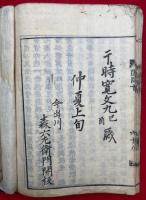 于時寛文九己酉歳
仲夏上旬
今出川
森六左衛門開板